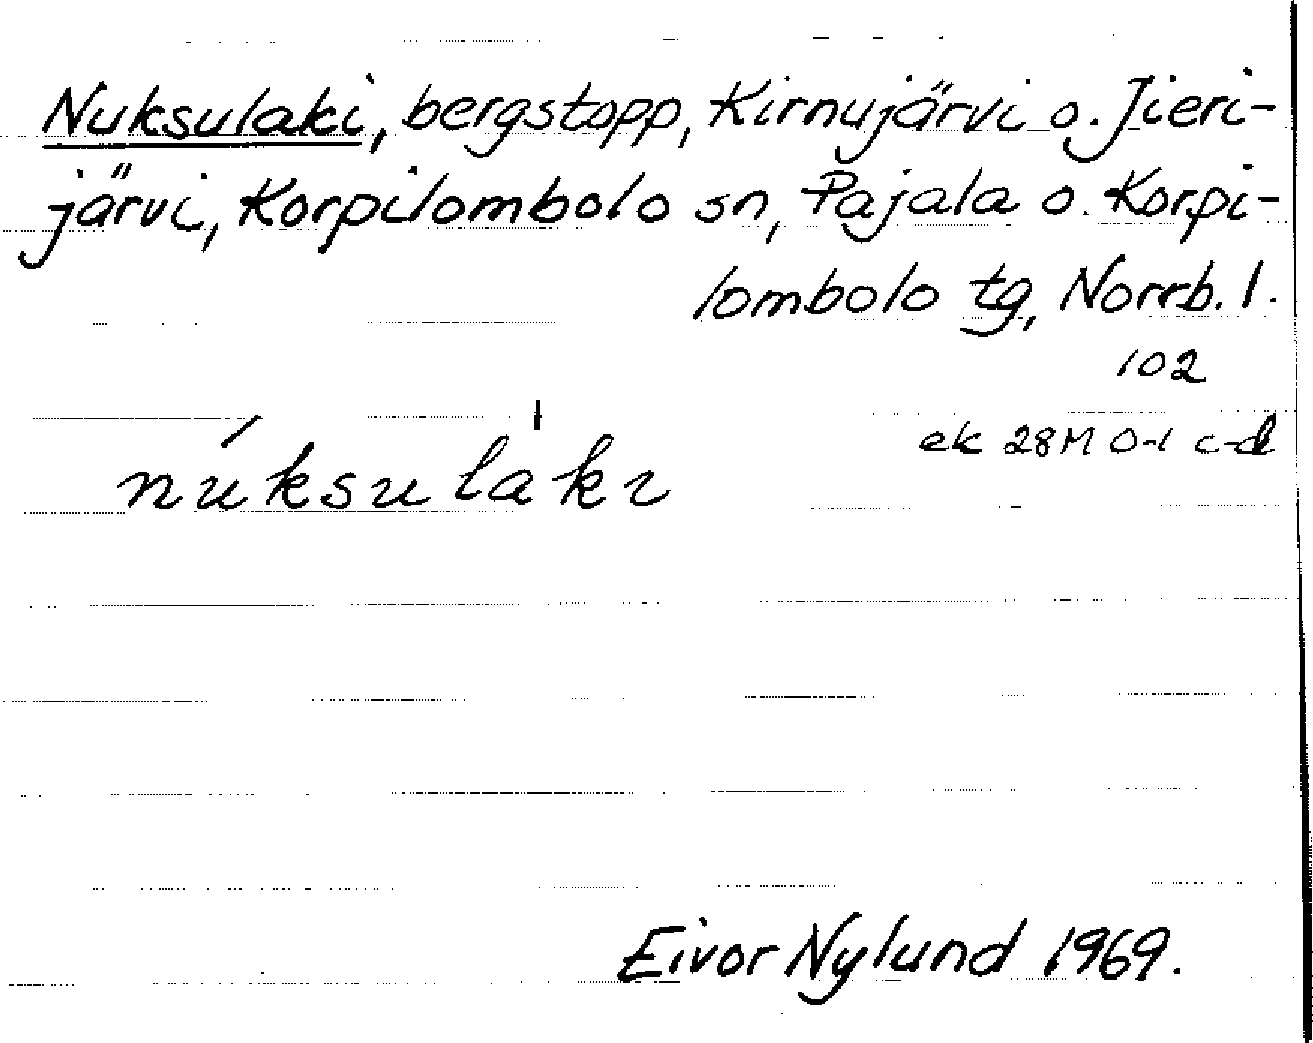 Nuksulaki, bergstopp, Kirnujärvi o. Jieri-
järvi, Korpilombolo sn, Pajala o. Korpi-
lombolo tg, Norrb. l.
102
ek 28M 0-1 c-d
núksulaˈkɩ
Eivor Nylund 1969.